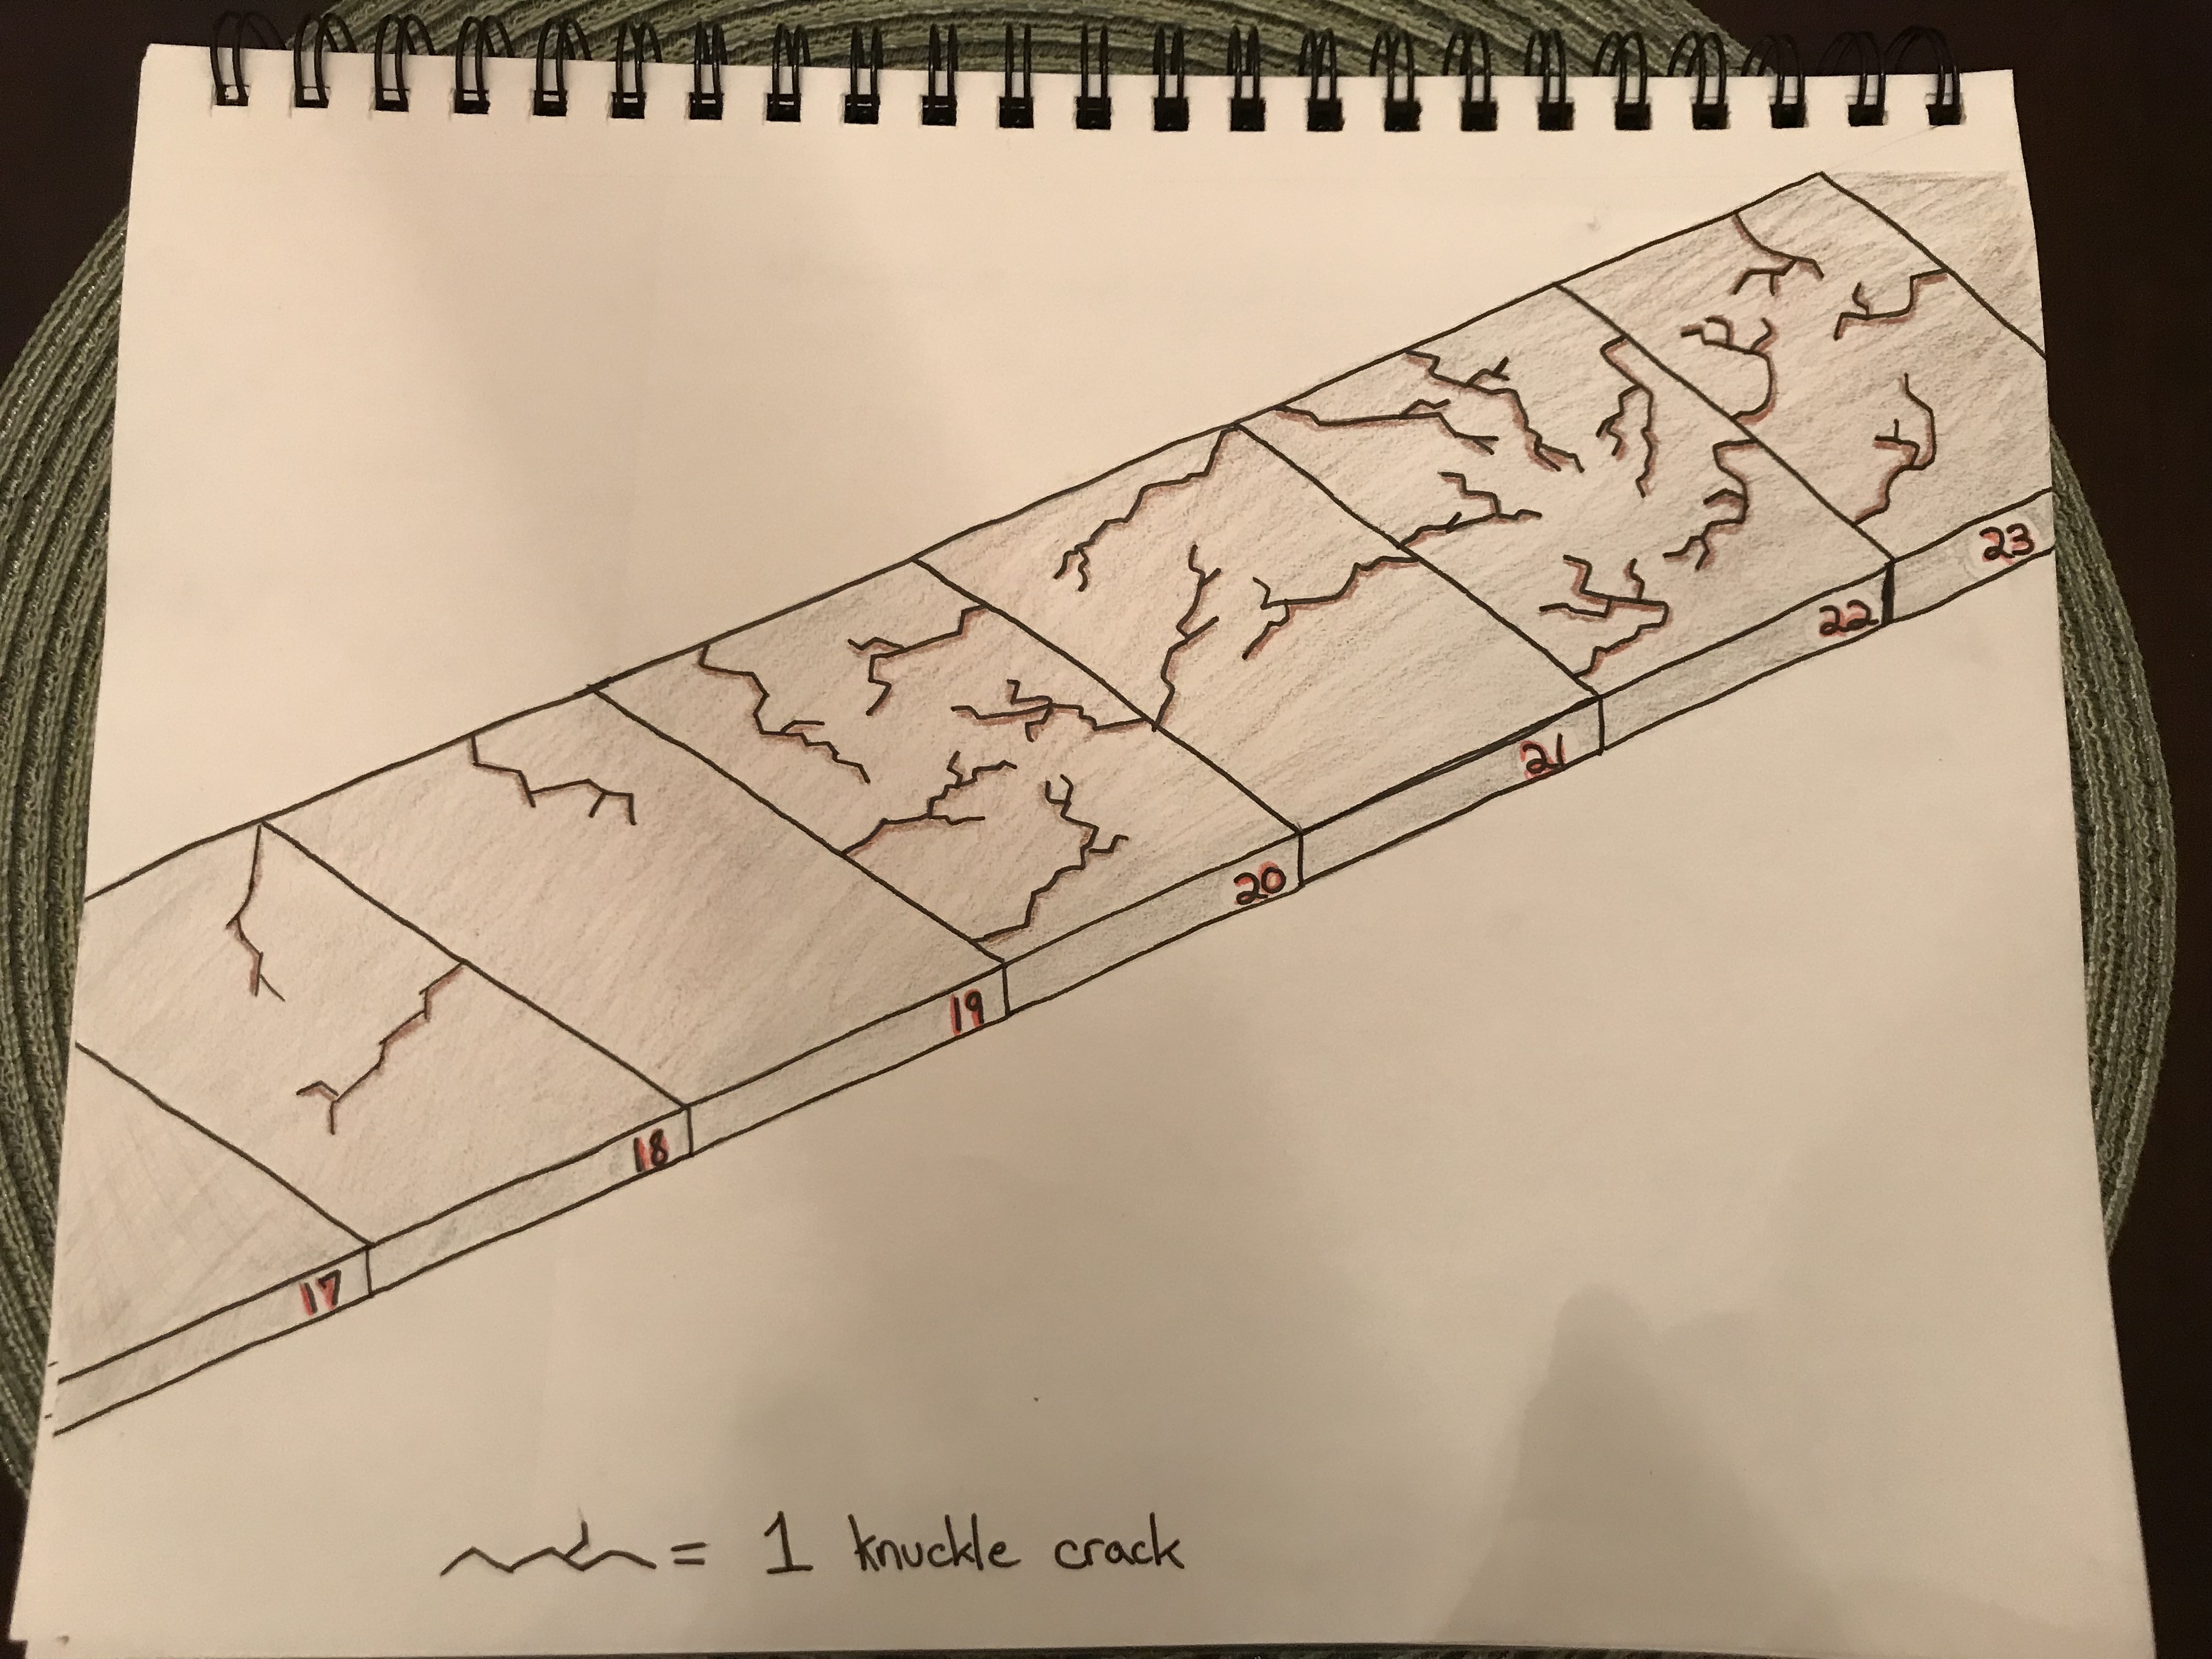 17
18
19
20
21
22
23
= 1 knuckle crack